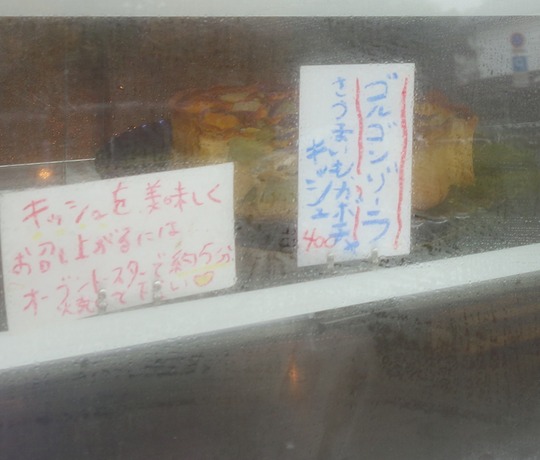 ゴルゴンゾーラ
さつまいもカボチャ
キッシュ
400
キッシュを美味しく
お召し上がるには
オーブントースターで約15分
焼いて下さい